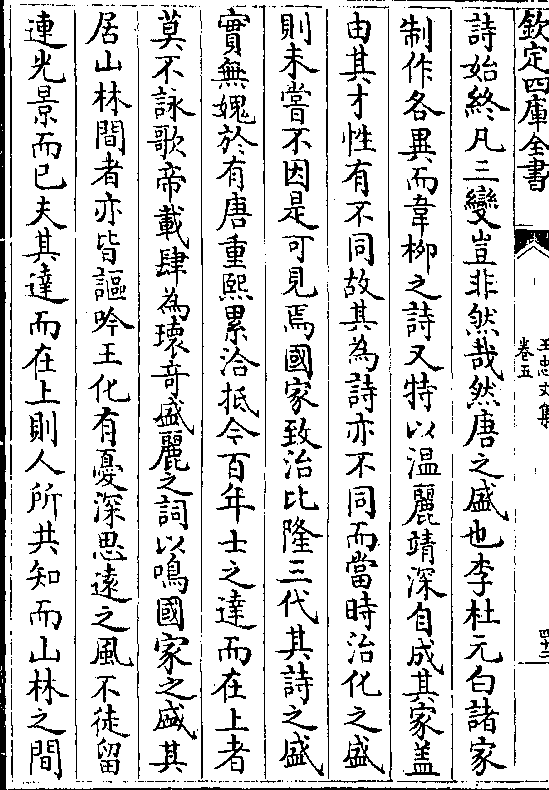 欽定四庫全書
王忠文集
卷五
四十三
詩始終凡三變豈非然哉然唐之盛也李杜元白諸家
制作各異而韋柳之詩又特以温麗靖深自成其家盖
由其才性有不同故其為詩亦不同而當時治化之盛
則未嘗不因是可見焉國家致治比隆三代其詩之盛
實無媿於有唐重熙累洽抵今百年士之達而在上者
莫不詠歌帝載肆為瓌竒盛麗之詞以鳴國家之盛其
居山林間者亦皆謳吟王化有憂深思遠之風不徒留
連光景而已夫其達而在上則人所共知而山林之間